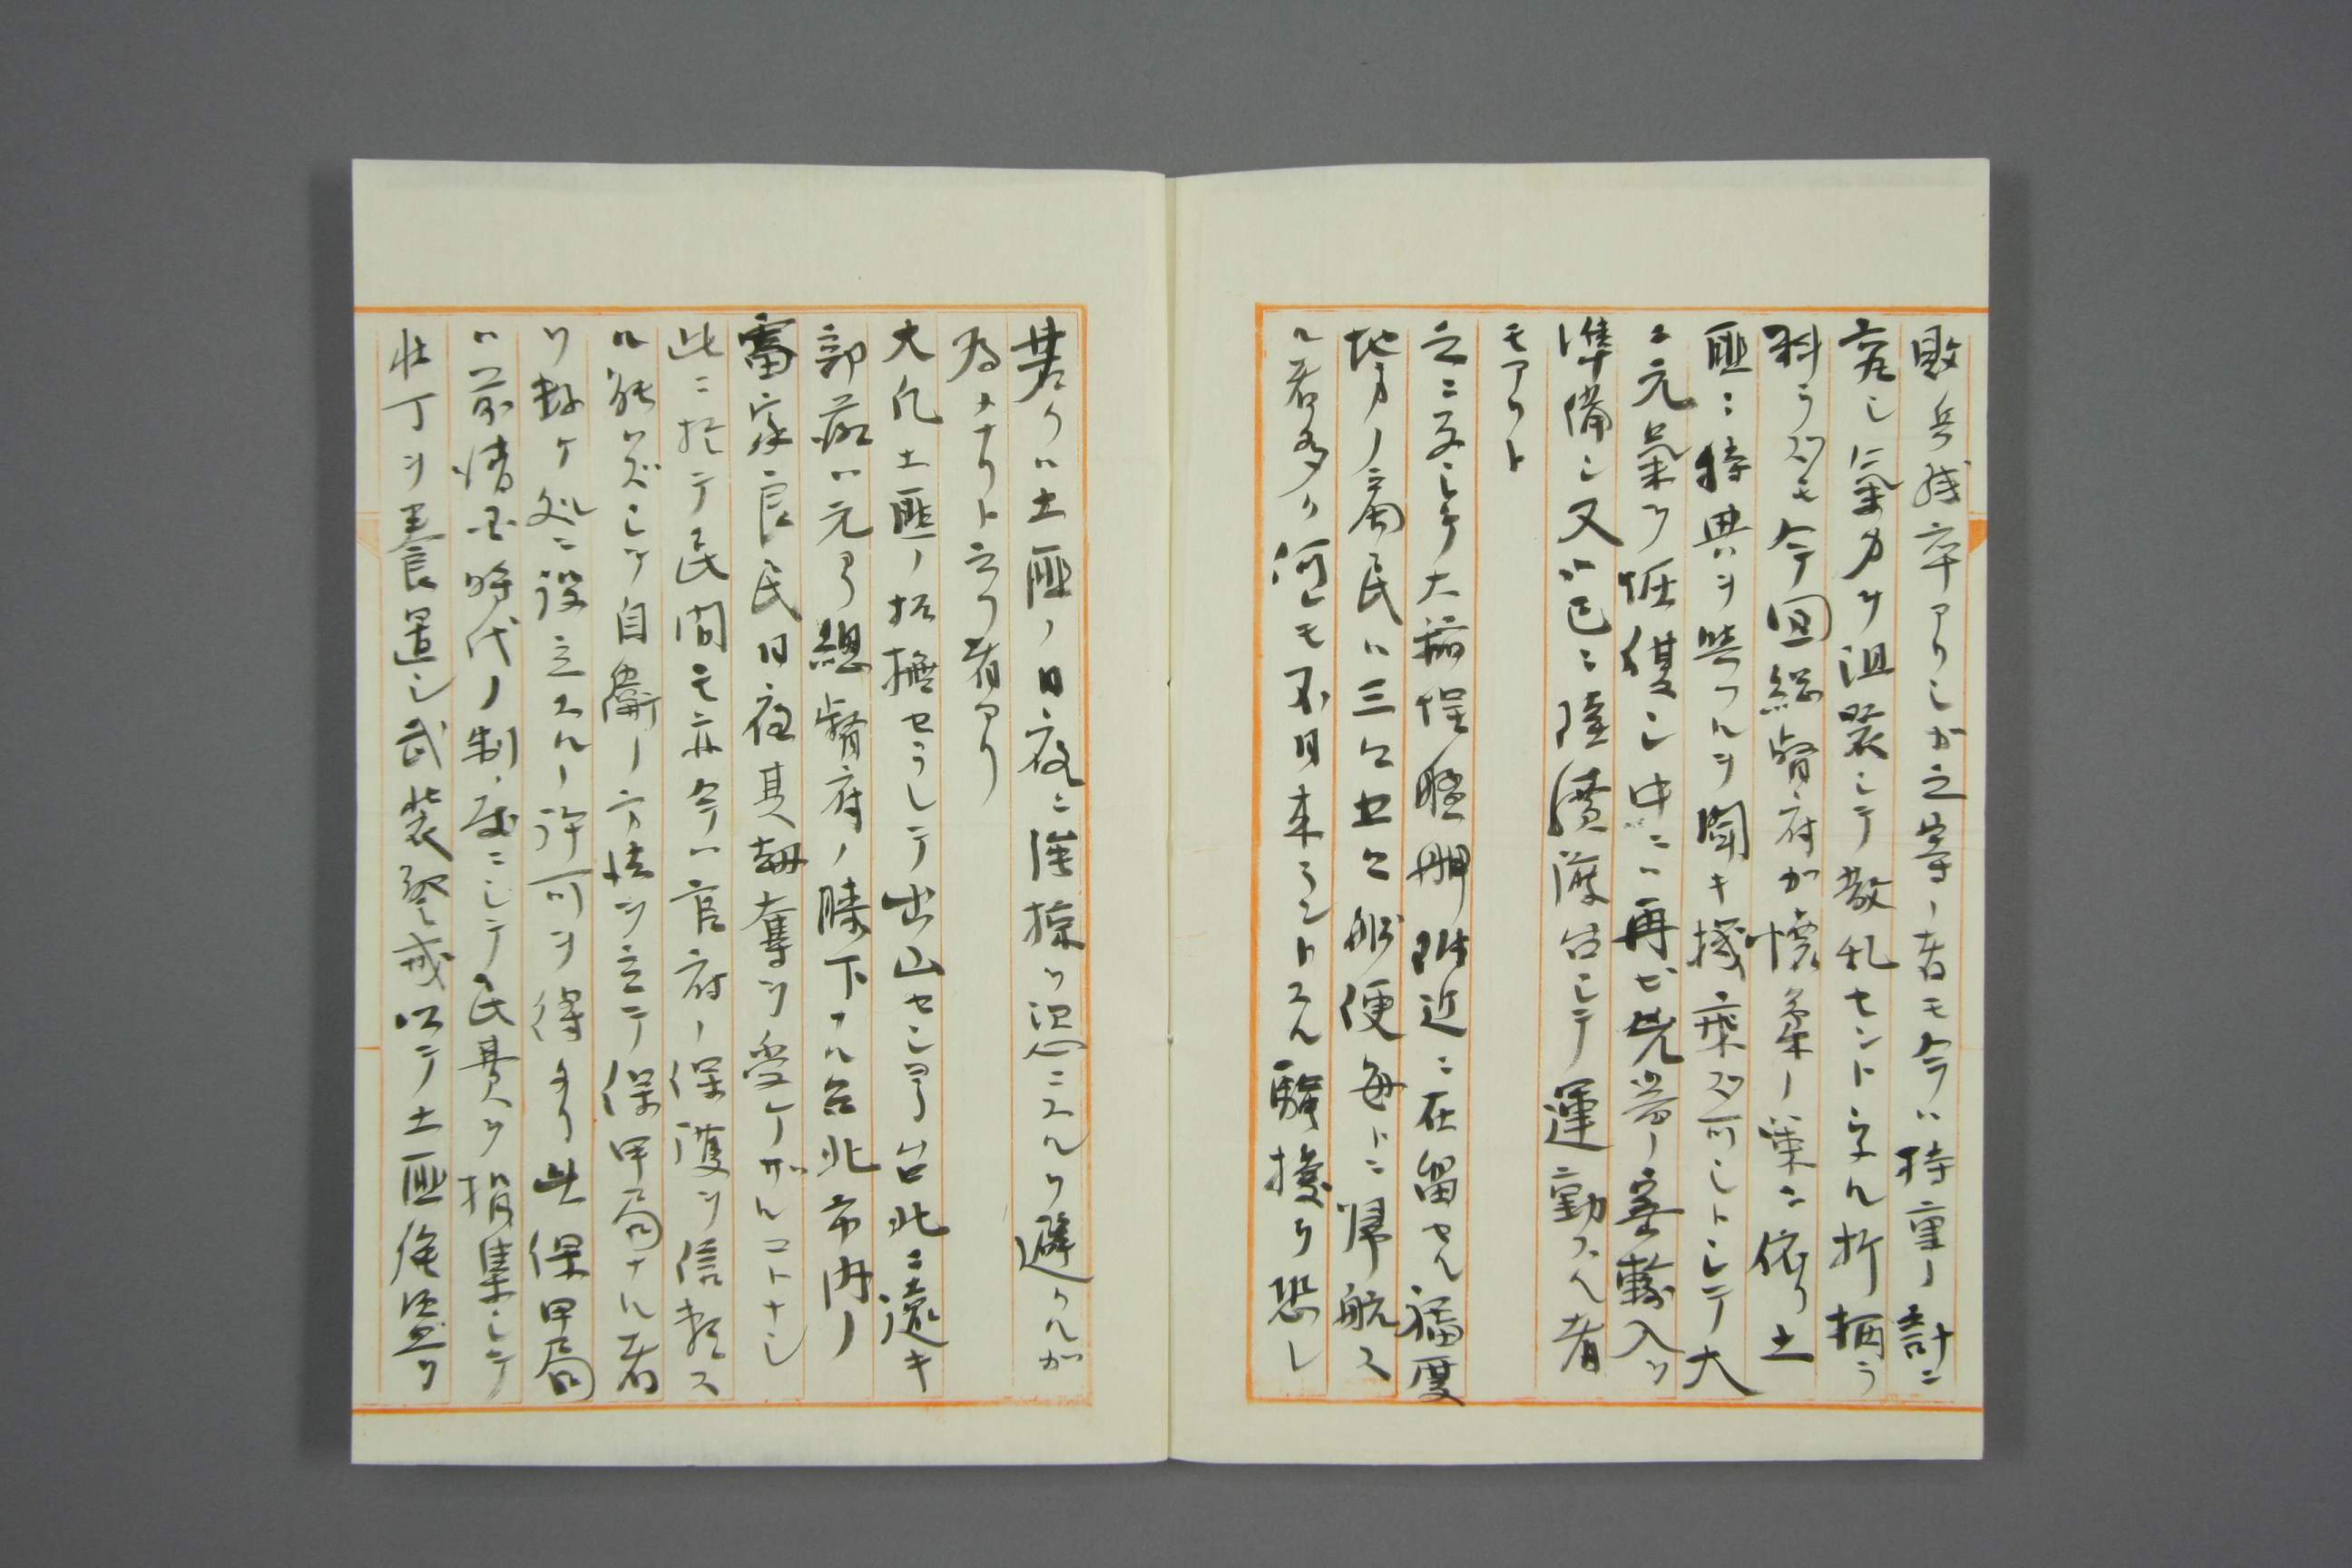 敗兵残卒アリシガ之等ノ者モ今ハ持重ノ計ニ
究シ氣力ヲ沮喪シテ散乱セントスル折柄
料ラズモ今回総督府ガ懐柔ノ策ニ依リ土
匪ニ特典ヲ與フルヲ聞キ機乗ズ可シトシテ大
ニ元氣ヲ恢復シ中ニハ再ビ銃器ノ密輸入ヲ
準備シ又ハ已ニ陸續渡台シテ運動スル者
モアリト
之ニ反シテ大稲埕艋舺附近ニ在留セル
地方ノ富民ハ三々五々船便毎ニ帰航ス
ル者多ク何レモ不日来ラントスル騒擾ヲ恐レ
若クハ土匪ノ日夜ニ強掠ヲ恣ニスルヲ避クルガ
為メナリト云フ者アリ
大凡土匪ノ招撫セラレテ出山セシヨリ台北ニ遠キ
郭落ハ元ヨリ総督府ノ膝下ナル台北市内ノ
富家良民日夜其劫奪ヲ受ケザルコトナシ
此ニ於テ民間モ亦今ハ官府ノ保護ヲ信頼ス
ル能ハズシテ自衛ノ方法ヲ立テ保甲局ナル者
ヲ数ケ処ニ設立スルノ許可ヲ得タリ此保甲局
ハ前清國時代ノ制度ニシテ民費ヲ捐集シテ
壮丁ヲ養置シ武装警戒以テ土匪強盗ヲ